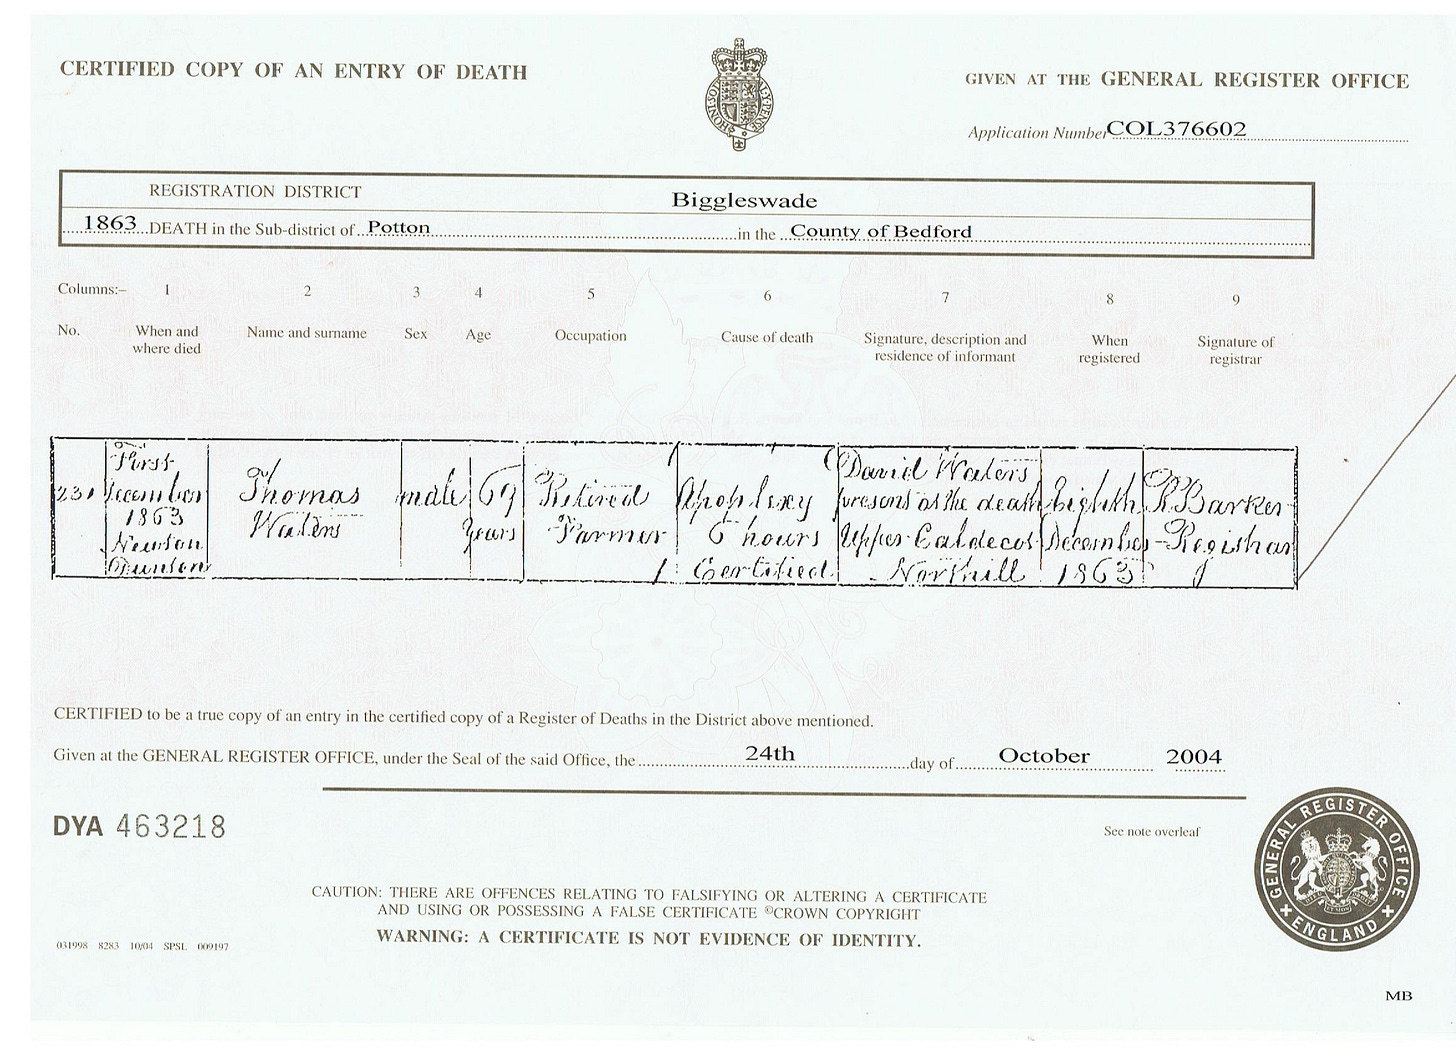 CERTIFIED COPY OF AN ENTRY OF DEATH
GIVEN AT THE GENERAL REGISTER OFFICE
Application Number COL376602
HONI SOI
REGISTRATION DISTRICT Biggleswade
1863 DEATH in the Sub-district of Potton in the County of Bedford
Columns:- 1 2 3 4 5 6 7 8 9
No.
When and where died
Name and surname
Sex
Age
Occupation
Cause of death
Signature, description and residence of informant
When registered
Signature of registrar
231
First
December
1863
Newton
Dunton
Thomas
Waters
male
69
years
Retired
Farmer
Apoplexy
6 hours
Certified
David Waters
present at the death
Upper Caldecot
Northill
Eighth
December
1863
R Barker
Registrar
CERTIFIED to be a true copy of an entry in the certified copy of a Register of Deaths in the District above mentioned.
Given at the GENERAL REGISTER OFFICE, under the Seal of the said Office, the 24th day of October 2004
DYA 463218
See note overleaf
GENERAL REGISTER OFFICE
ENGLAND
CAUTION: THERE ARE OFFENCES RELATING TO FALSIFYING OR ALTERING A CERTIFICATE
AND USING OR POSSESSING A FALSE CERTIFICATE ©CROWN COPYRIGHT
WARNING: A CERTIFICATE IS NOT EVIDENCE OF IDENTITY.
031998 8283 10/04 SPSL 009197
MB